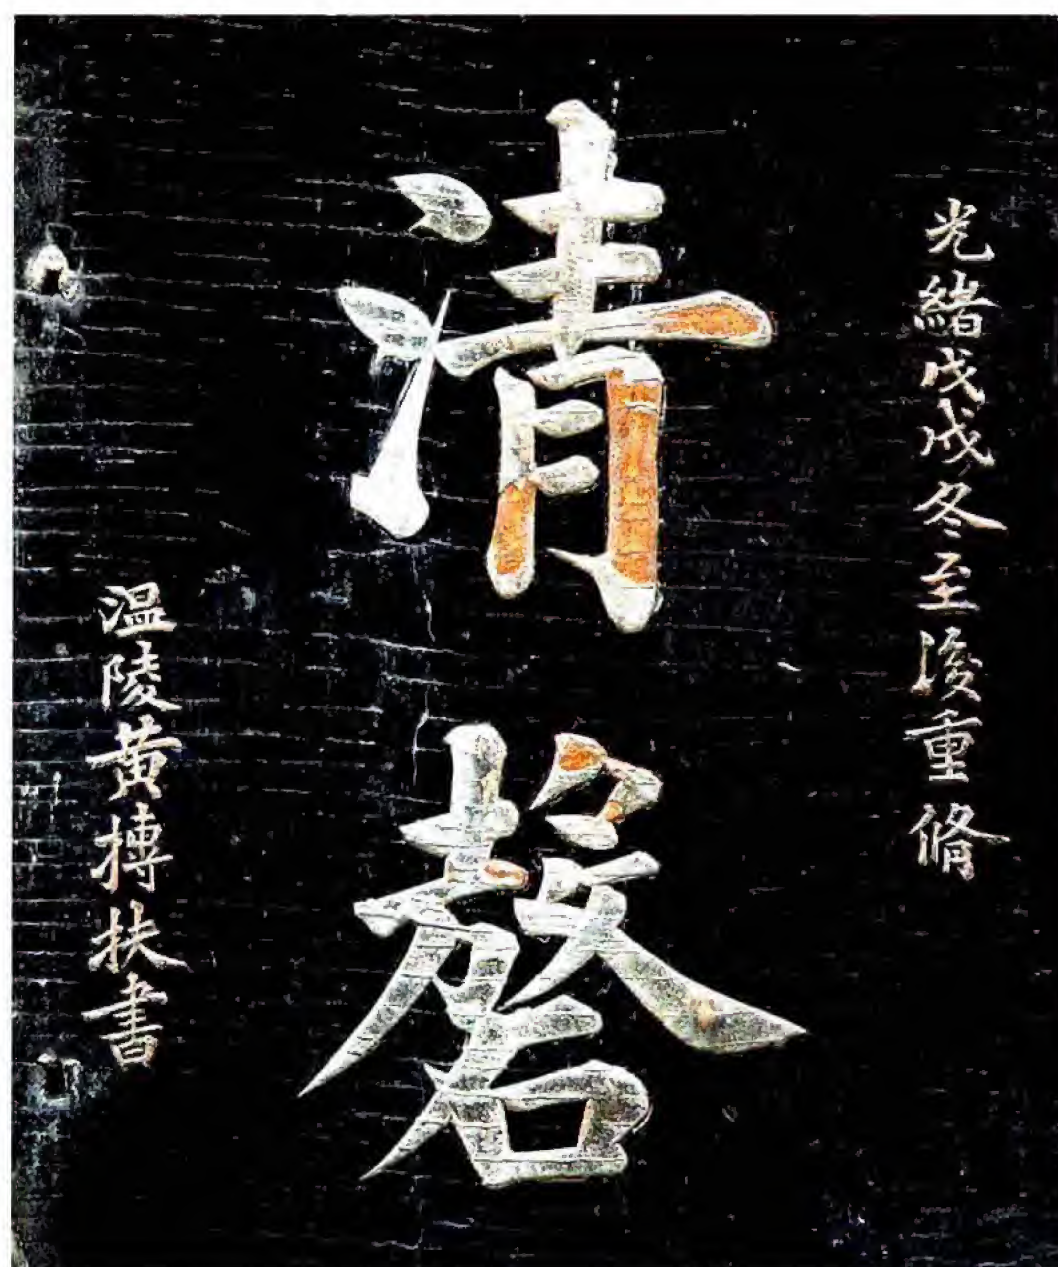 光緒戊戌冬至後重脩
清磬
温陵黄摶扶書